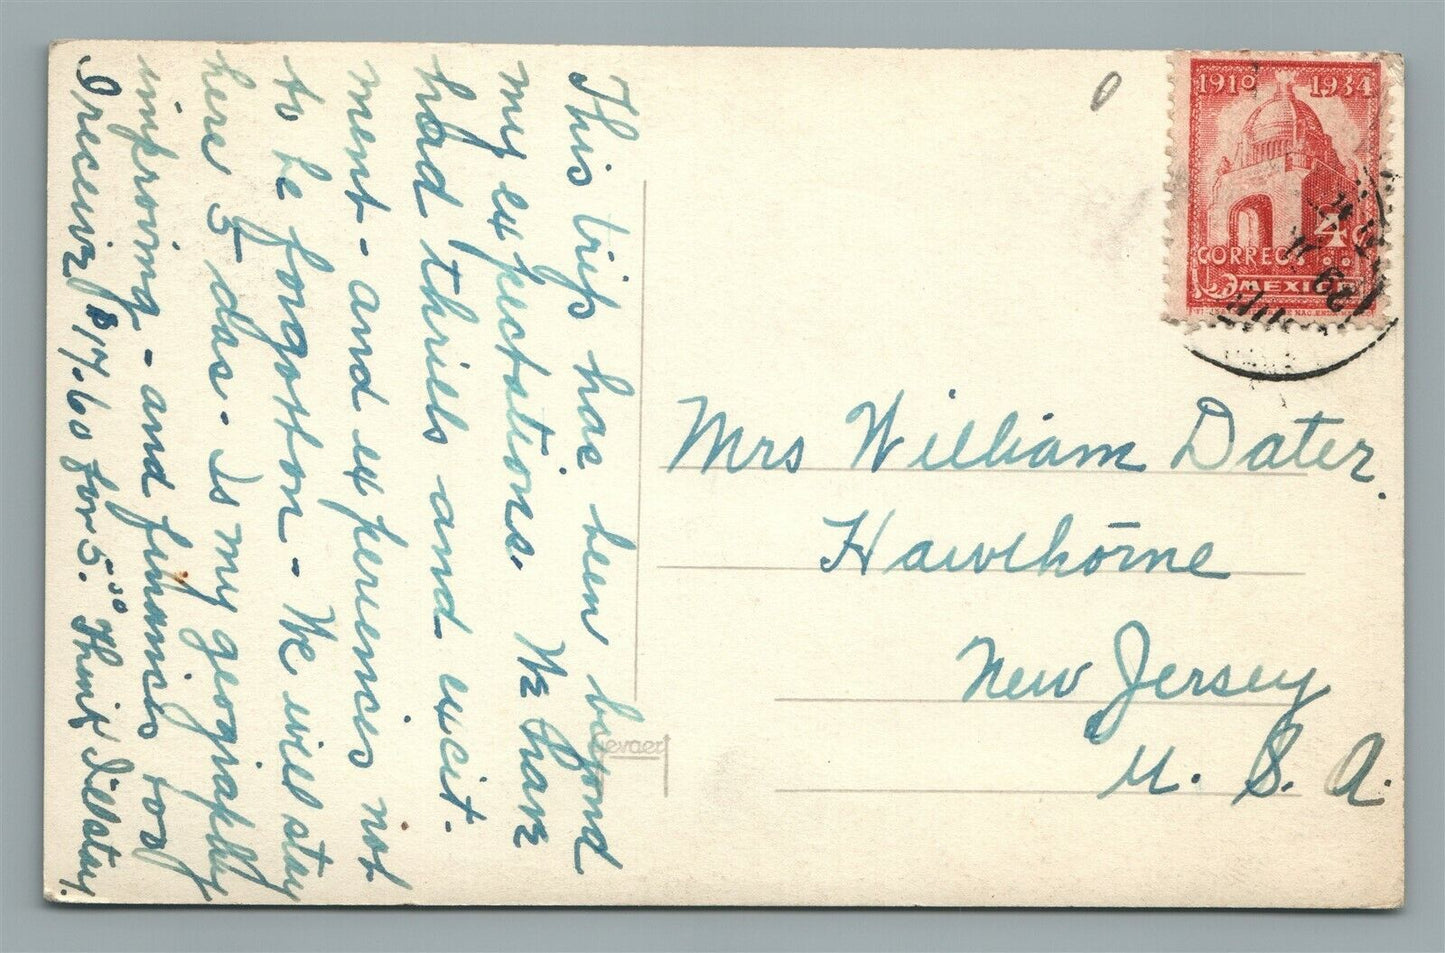 This trip has been beyond
my expectations. We have
had thrills and excit-
ment - and experiences not
to be forgotton - We will stay
here 5 das - Is my geography
improving - and finances too
I receive $17.60 for 5.00 Think I'll stay.
1910 1934
4¢
CORREOS
MEXICO
Mrs William Dater.
Hawthorne
New Jersey
U. S. A.
gevaert